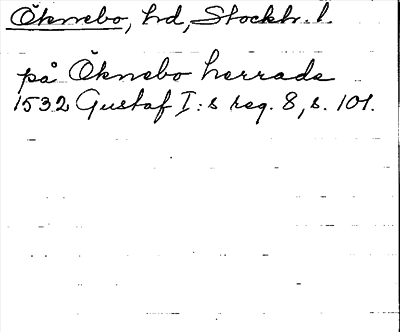 Öknebo, hd, Stockh. l.
på Öknebo herrade
1532 Gustaf I:s reg. 8, s. 101.